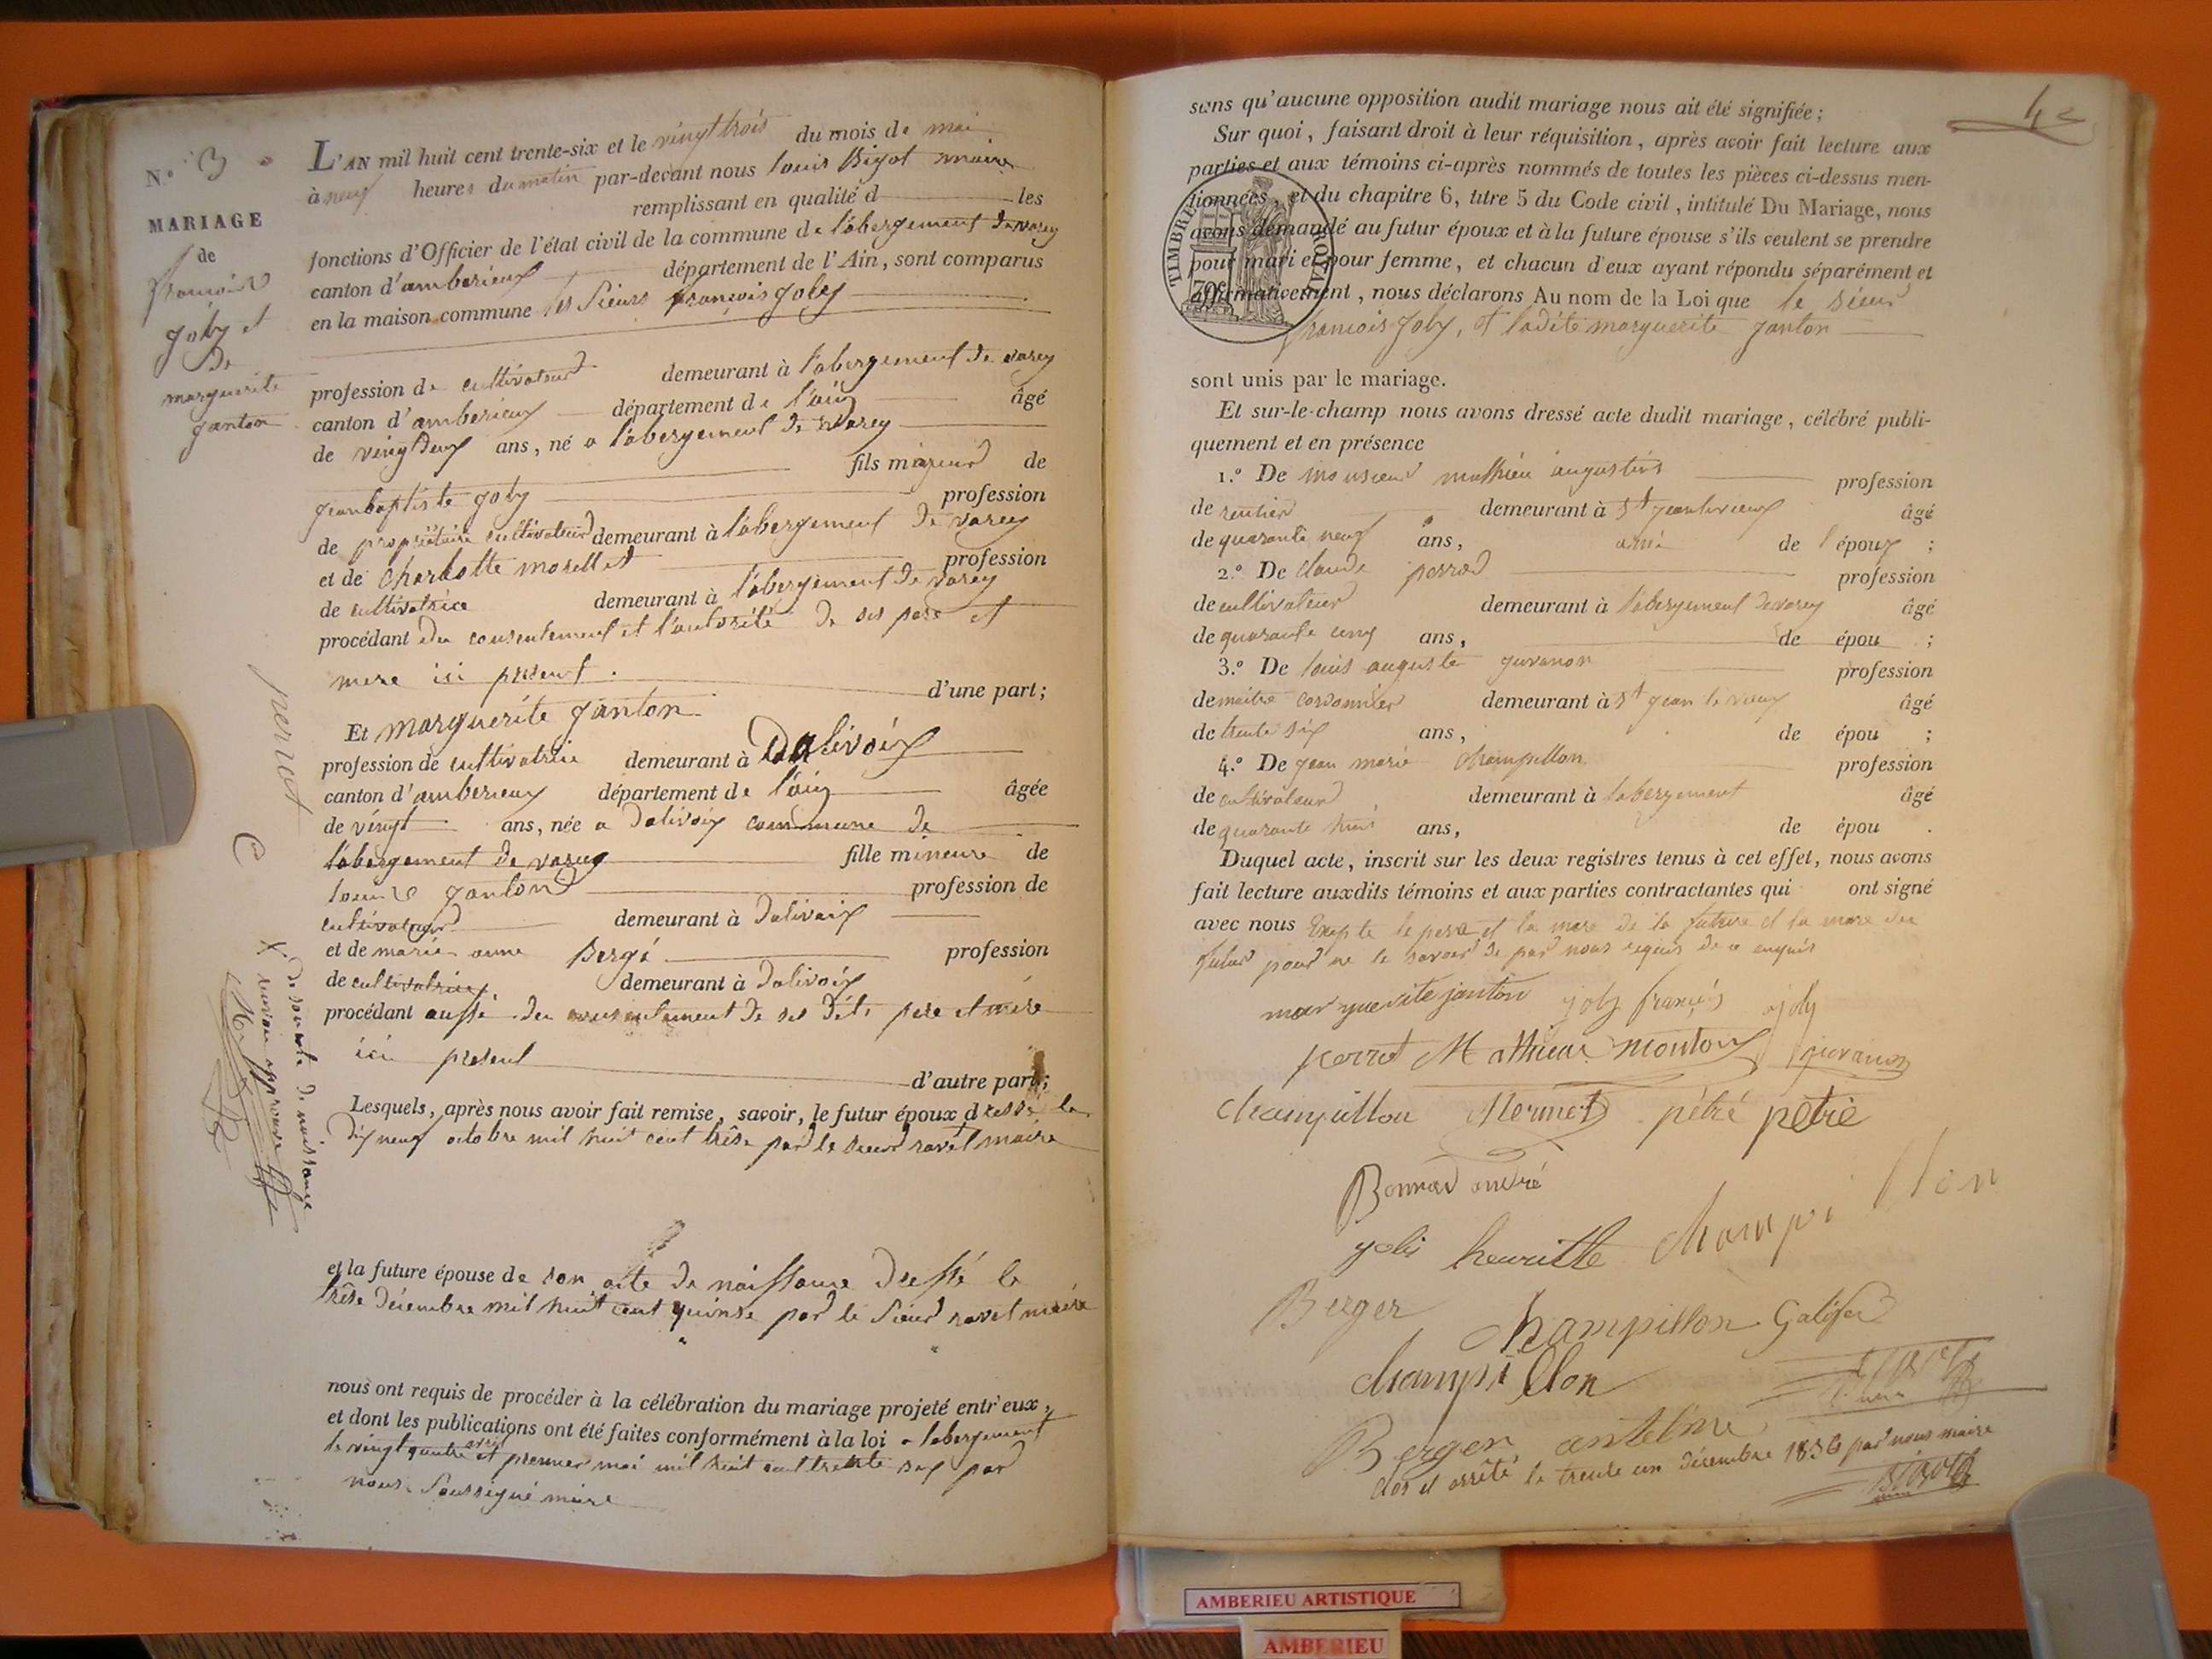 N.o 3
MARIAGE
de
françois
joly et
De
marguerite
janton
L'AN mil huit cent trente-six et le vingt trois du mois de mai
à neuf heures du matin par-devant nous louis Bigot maire
remplissant en qualité d les
fonctions d'Officier de l'état civil de la commune de l'abergement de varey
canton d'amberieux département de l'Ain, sont comparus
en la maison commune les Sieurs françois joly
profession de cultivateur demeurant à l'abergement de varey
canton d'amberieux département de l'ain âgé
de vingt deux ans, né a l'abergement de varey
fils majeur de
jean baptiste joly profession
de propriétaire cultivateur demeurant à l'abergement de varey
et de charlotte morellet profession
de cultivatrice demeurant à l'abergement de varey
procédant du consentement et l'autorité de ses pere et
mere ici présent. d'une part;
Et marguerite janton
profession de cultivatrice demeurant à Dalivoix
canton d'amberieux département de l'ain âgée
de vingt ans, née a dalivoix commune de
l'abergement de varey fille mineure de
janton profession de
cultivateur demeurant à dalivoix
et de marie anne Bergé profession
de cultivatrice demeurant à Dalivoix
procédant aussi du consentement de ses dits pere et mère
ici présent
d'autre part;
Lesquels, après nous avoir fait remise, savoir, le futur époux dressé le
dix neuf octobre mil huit cent trêse par le sieur ravet maire
et la future épouse de son acte de naissance dressé le
trêse décembre mil huit cent quinse par le sieur ravet maire
nous ont requis de procéder à la célébration du mariage projeté entr'eux,
et dont les publications ont été faites conformément à la loi a labergement
avril
le vingt quatre et premier mai mil huit cent trente six par
nous soussigné maire
perrot
de son acte de naissance
renvoi approuvé
sans qu'aucune opposition audit mariage nous ait été signifiée;
Sur quoi, faisant droit à leur réquisition, après avoir fait lecture aux
parties et aux témoins ci-après nommés de toutes les pièces ci-dessus men-
tionnées, et du chapitre 6, titre 5 du Code civil, intitulé Du Mariage, nous
avons demandé au futur époux et à la future épouse s'ils veulent se prendre
pour mari et pour femme, et chacun d'eux ayant répondu séparément et
affirmativement, nous déclarons Au nom de la Loi que le sieur
françois joly, et ladite marguerite janton
TIMBRE ROYAL
sont unis par le mariage.
Et sur-le-champ nous avons dressé acte dudit mariage, célébré publi-
quement et en présence
1.o De monsieur mathieu augustin profession
de rentier demeurant à St jean le vieux âgé
de quarante neuf ans, ami de l'époux ;
2.o De claude perrod profession
de cultivateur demeurant à l'abergement de varey âgé
de quarante cinq ans, de épou ;
3.o De louis auguste juvanon profession
de maitre cordonnier demeurant à St jean le vieux âgé
de trente six ans, de épou ;
4.o De jean marie champillon profession
de cultivateur demeurant à labergement âgé
de quarante huit ans, de épou .
Duquel acte, inscrit sur les deux registres tenus à cet effet, nous avons
fait lecture auxdits témoins et aux parties contractantes qui ont signé
avec nous Exepte le pere et la mere de la future et la mere du
futur pour ne le savoir de par nous requis de ce enquis
marguerite janton joly françois joly
perrot Mathieu mouton juvanon
champillon Mermet pétré petré
Bonnard andré
joly henriette champillon
Berger champillon Galifer
champillon
Berger antelme
clos et arrêté le trente un décembre 1836 par nous maire
Bigot
AMBERIEU ARTISTIQUE
AMBERIEU